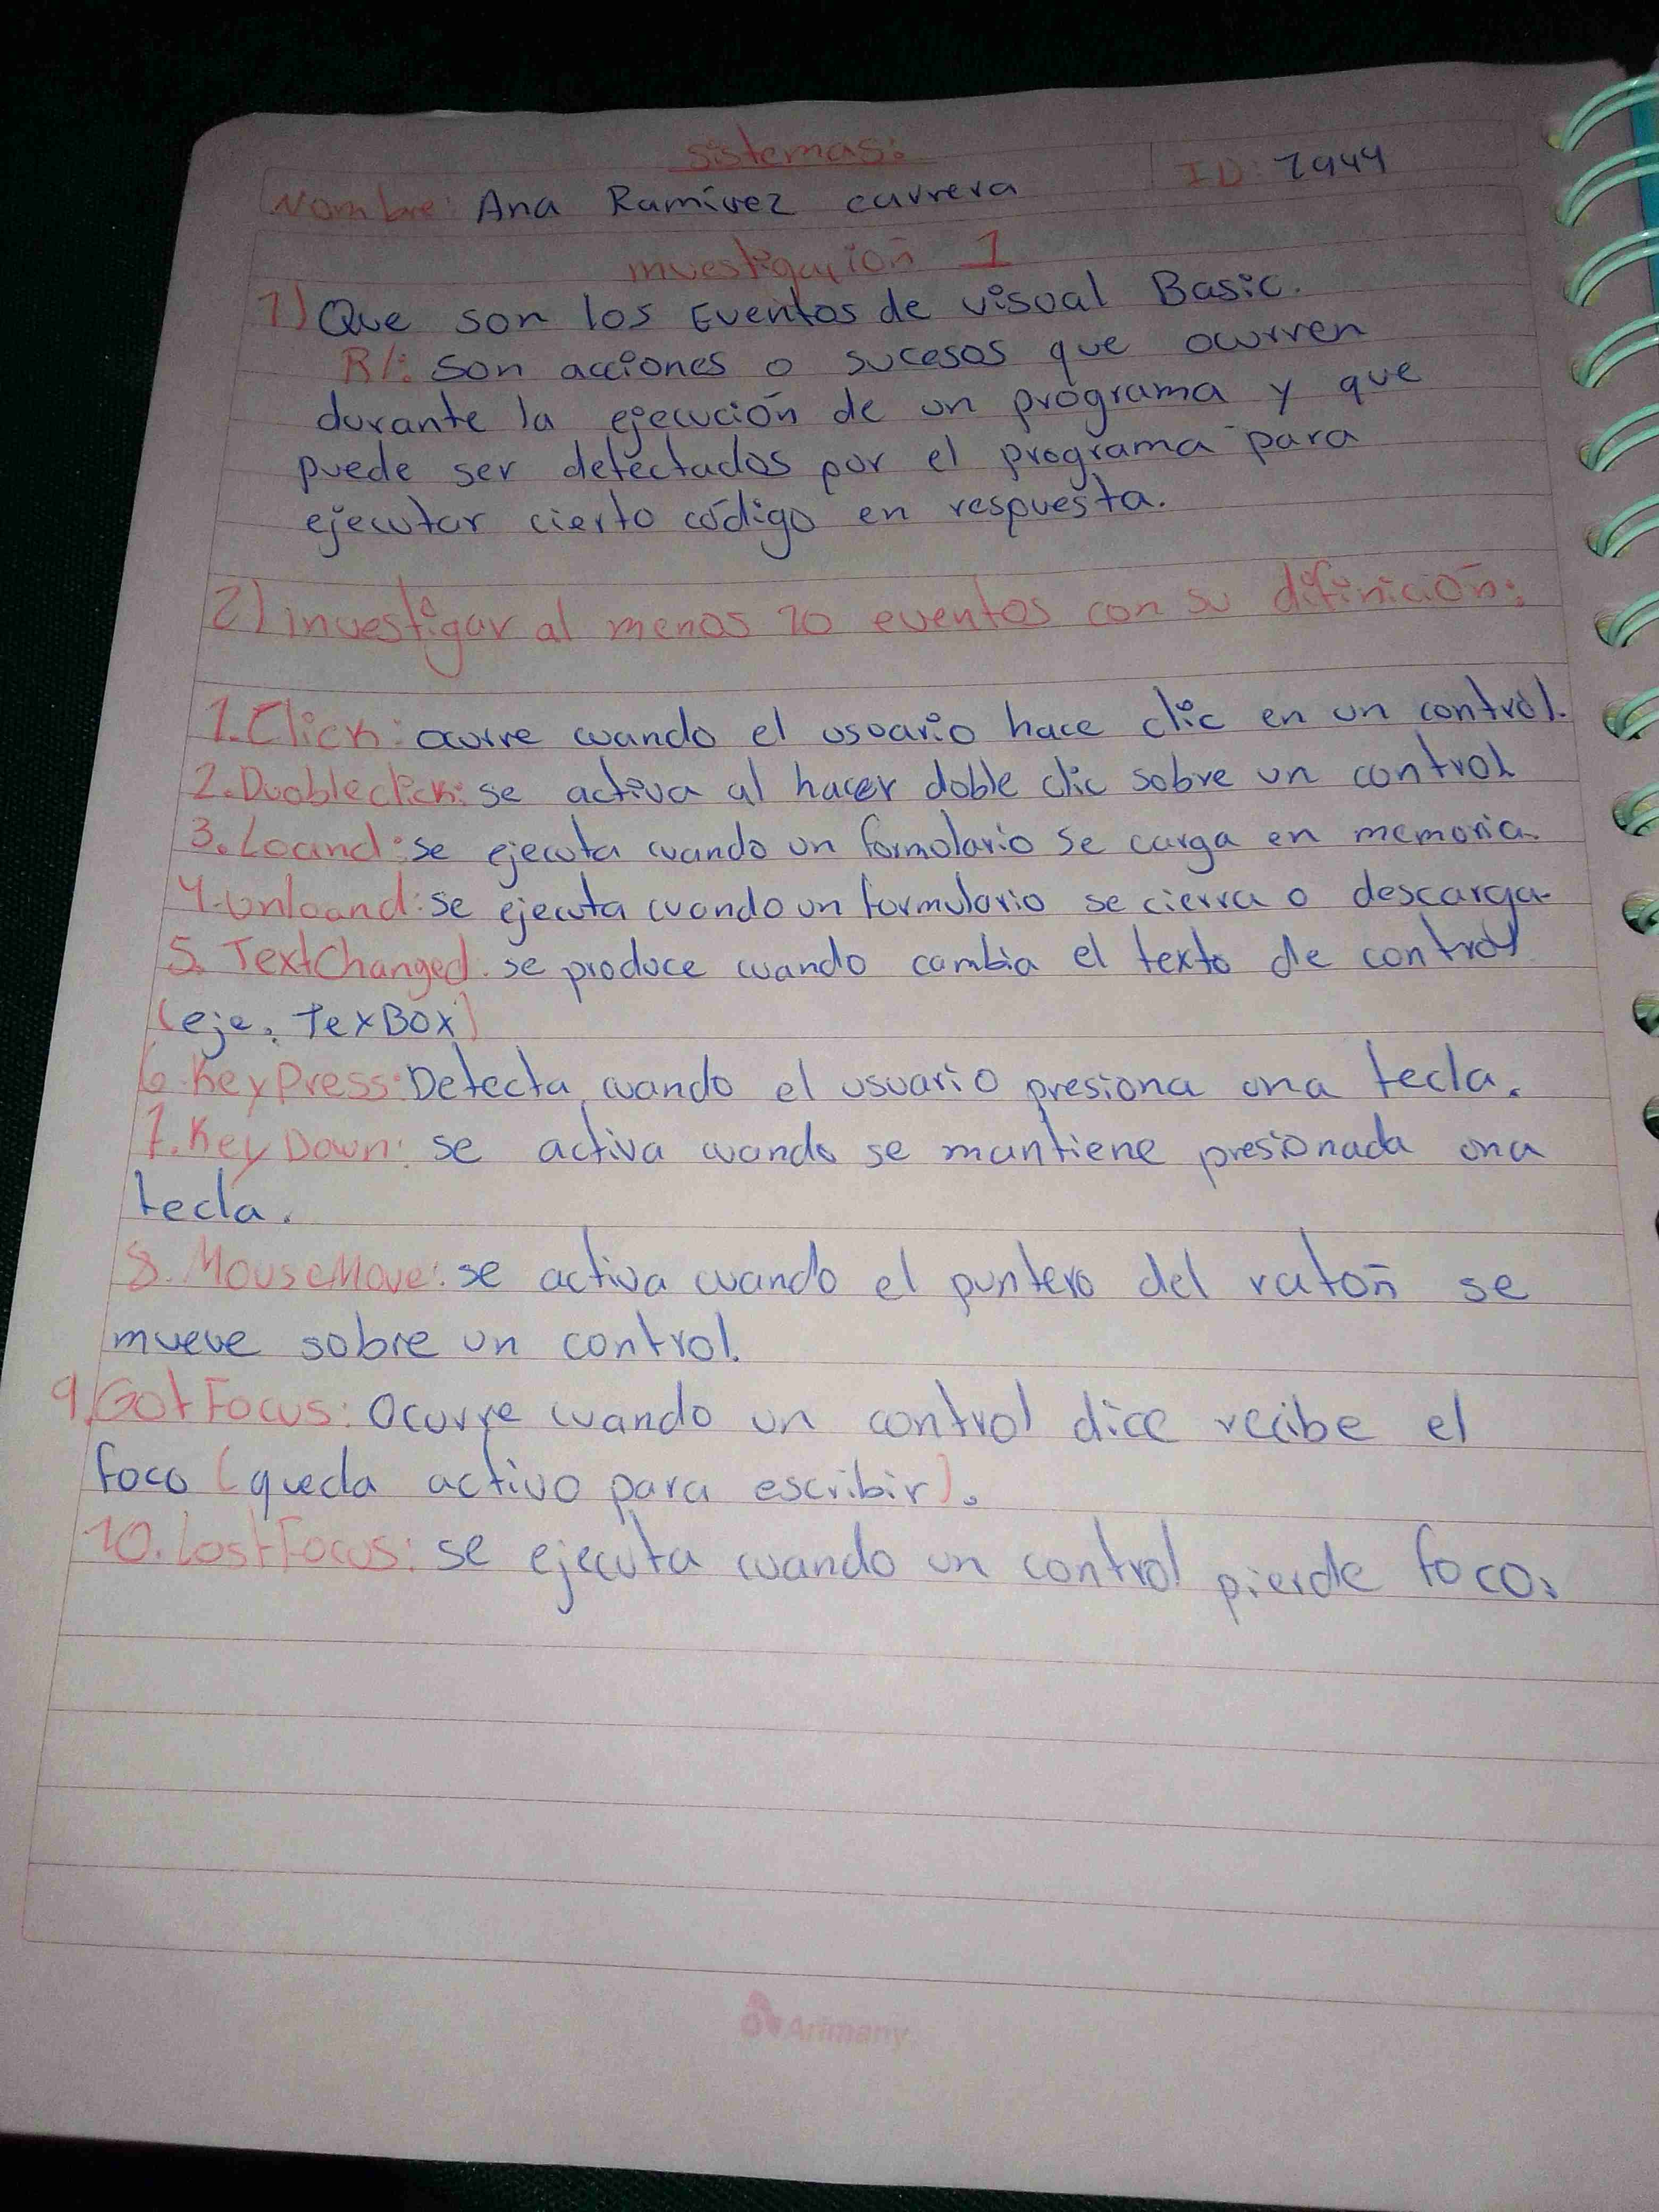 sistemas:
Nombre: Ana Ramírez carrera ID: 7944
investigación 1
1) Que son los Eventos de visual Basic.
R/: son acciones o sucesos que ocurren
durante la ejecución de un programa y que
puede ser detectados por el programa para
ejecutar cierto código en respuesta.
2) investigar al menos 10 eventos con su difinición:
1. Click: ocurre cuando el usuario hace clic en un control.
2. Duobleclick: se activa al hacer doble clic sobre un control
3. Loand: se ejecuta cuando un formulario se carga en memoria.
4. unloand: se ejecuta cuando un formulario se cierra o descarga.
5. TextChanged. se produce cuando cambia el texto de control
(eje. TexBox)
6. KeyPress: Detecta cuando el usuario presiona una tecla.
7. Key Down: se activa cuando se mantiene presionada una
tecla.
8. MouseMove: se activa cuando el puntero del ratón se
mueve sobre un control.
9. Got Focus: Ocurre cuando un control dice recibe el
foco (queda activo para escribir).
10. LostFocus: se ejecuta cuando un control pierde foco.
Arimany